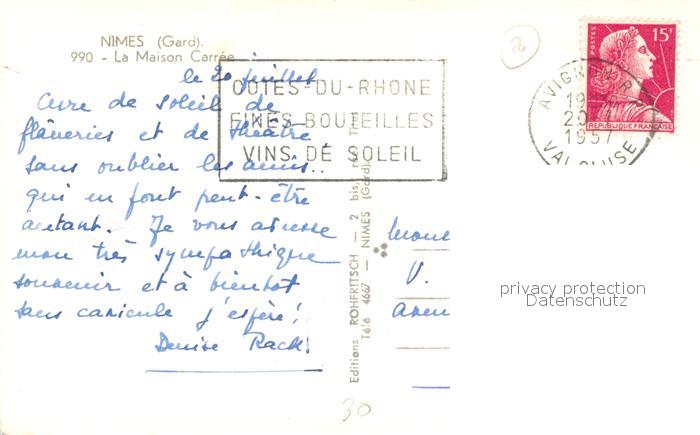 NIMES (Gard).
990 - La Maison Carrée
le 20 juillet
de soleil de
flâneries et de théâtre
sans oublier les amis..
qui en font peut-être
autant. Je vous adresse
mon très sympathique
souvenir et à bientôt
sans canicule j'espère!
Denise
COTES-DU-RHONE
FINES BOUTEILLES
VINS DE SOLEIL
Editions ROHFRITSCH — 2 bis,
Télé 4667 — NIMES (Gard).
V.
POSTES
15F
REPUBLIQUE FRANÇAISE
AVIGNON
20
1957
VAUCLUSE
2
30
privacy protection
Datenschutz